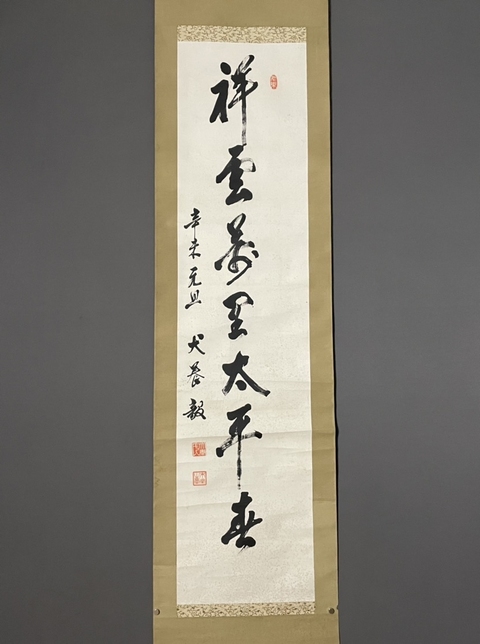 祥雲万里太平春
辛未元旦 犬養毅